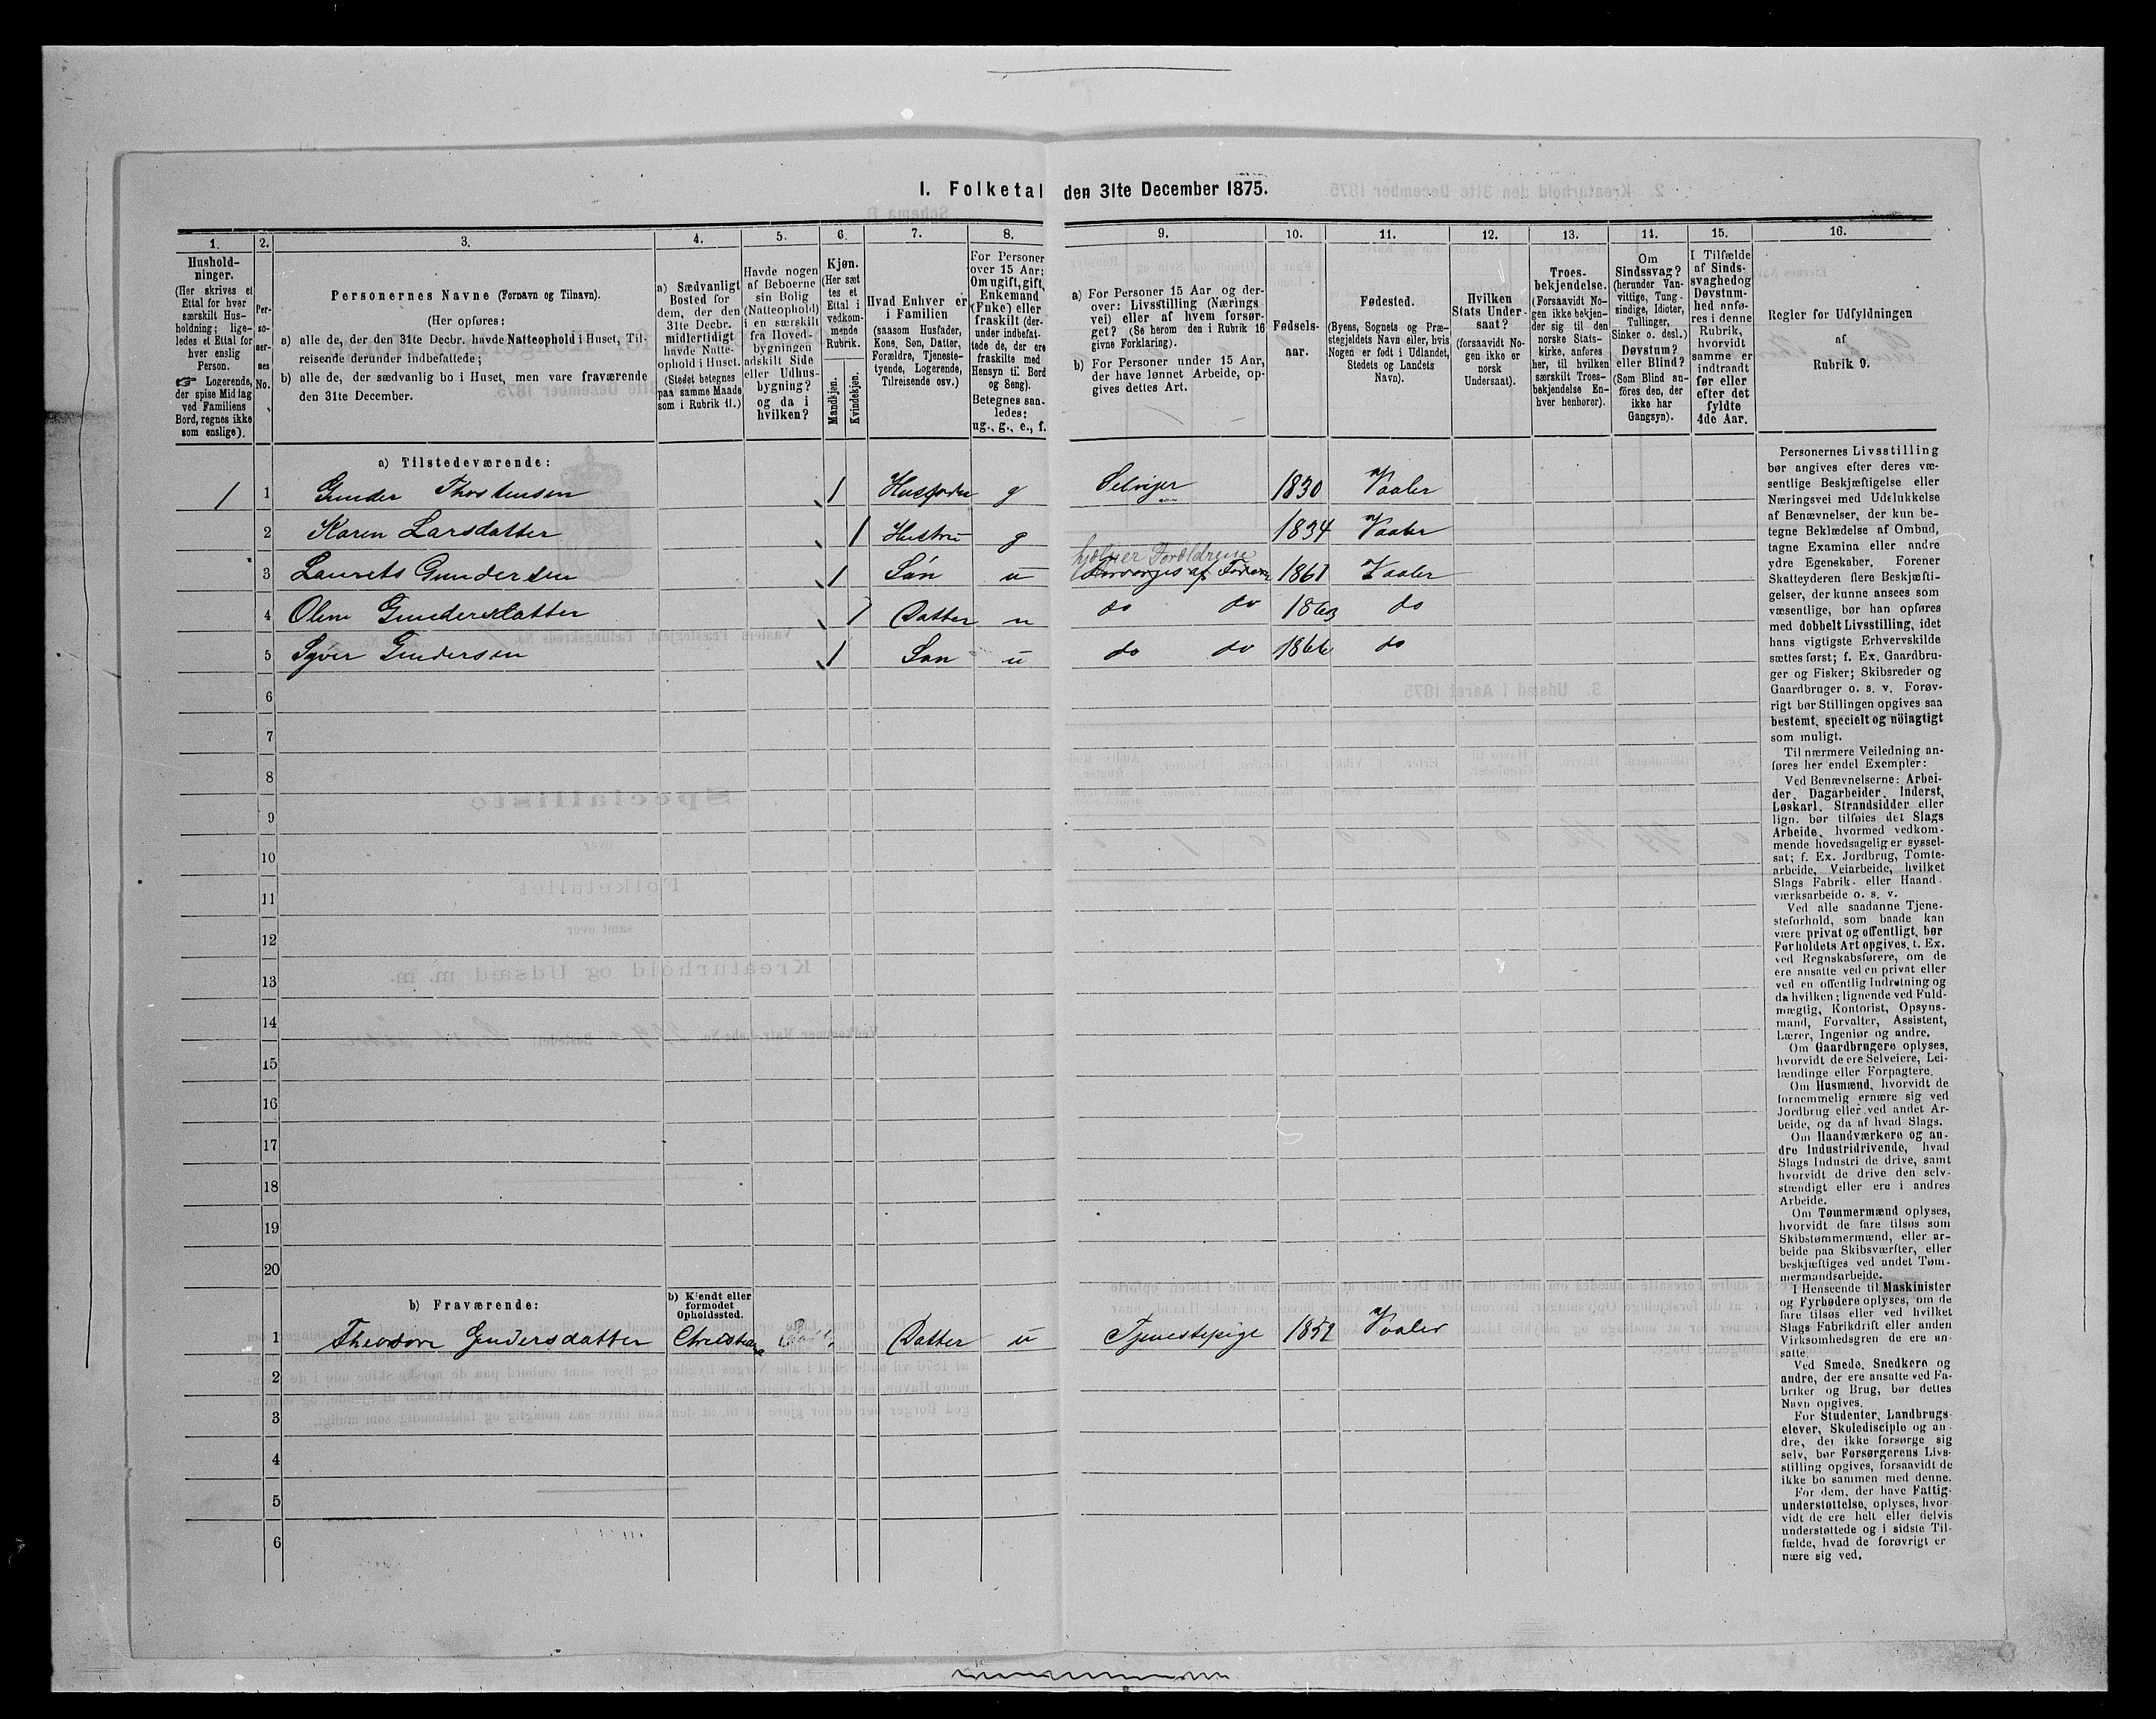 I. Folketal den 31te December 1875.
1. 2. 3. 4. 5. 6. 7. 8. 9. 10. 11. 12. 13. 14. 15. 16.
Hushold-
ninger.
(Her skrives et
Ettal for hver
særskilt Hus-
holdning; lige-
ledes et Ettal for
hver enslig
Person.
☞ Logerende,
der spise Middag
ved Familiens
Bord, regnes ikke
som enslige).
Per-
so-
ner-
nes
No.
Personernes Navne (Fornavn og Tilnavn).
(Her opføres:
a) alle de, der den 31te Decbr. havde Natteophold i Huset, Til-
reisende derunder indbefattede;
b) alle de, der sædvanlig bo i Huset, men vare fraværende
den 31te December.
a) Sædvanligt
Bosted for
dem, der den
31te Decbr.
midlertidigt
havde Natte-
ophold i Huset.
(Stedet betegnes
paa samme Maade
som i Rubrik 11.)
Havde nogen
af Beboerne
sin Bolig
(Natteophold)
i en særskilt
fra Hoved-
bygningen
adskilt Side
eller Udhus-
bygning?
og da i
hvilken?
Kjøn.
(Her sæt
tes et
Ettal i
vedkom-
mende
Rubrik.
Mandkjøn.
Kvindekjøn.
Hvad Enhver er
i Familien
(saasom Husfader,
Kone, Søn, Datter,
Forældre, Tjeneste-
tyende, Logerende,
Tilreisende osv.)
For Personer
over 15 Aar:
Om ugift, gift,
Enkemand
(Enke) eller
fraskilt (der-
under indbefat-
tede de, der ere
fraskilte med
Hensyn til Bord
og Seng).
Betegnes saa-
ledes:
ug., g., e., f.
a) For Personer 15 Aar og der-
over: Livsstilling (Nærings
vei) eller af hvem forsør-
get? (Se herom den i Rubrik 16
givne Forklaring).
b) For Personer under 15 Aar,
der have lønnet Arbeide, op-
gives dettes Art.
Fødsels-
aar.
Fødested.
(Byens, Sognets og Præ-
stegjeldets Navn eller, hvis
Nogen er født i Udlandet,
Stedets og Landets
Navn).
Hvilken
Stats Under-
saat?
(forsaavidt No-
gen ikke er
norsk
Undersaat).
Troes-
bekjendelse.
(Forsaavidt No-
gen ikke bekjen-
der sig til den
norske Stats-
kirke, anføres
her, til hvilken
særskilt Troes-
bekjendelse En-
hver henhører).
Om
Sindssvag?
(herunder Van-
vittige, Tung-
sindige, Idioter,
Tullinger,
Sinker o. desl.)
Døvstum?
eller Blind?
(Som Blind an-
føres den, der
ikke har
Gangsyn).
I Tilfælde
af Sinds-
svaghed og
Døvstum-
hed anfø-
res i denne
Rubrik,
hvorvidt
samme er
indtraadt
før eller
efter det
fyldte
4de Aar.
Regler for Udfyldningen
af
Rubrik 9.
a) Tilstedeværende:
1 1 Gunder Thostensen 1 Husfader g Selvejer 1830 Vaaler
2 Karen Larsdatter 1 Hustru g 1834 Vaaler
hjelper Forældrene
3 Laurets Gundersen 1 Sön u Forsørges af 1861 Vaaler
4 Oline Gundersdatter 1 Datter u do do 1863 do
5 Syver Gundersen 1 Sön u do do 1866 do
6
7
8
9
10
11
12
13
14
15
16
17
18
19
20
b) Fraværende:
b) Kjendt eller
formodet
Opholdssted.
1 Theodore Gundersdatter Datter u Tjenestepige 1852 Vaaler
2
3
4
5
6
Personernes Livsstilling
bør angives efter deres væ-
sentlige Beskjæftigelse eller
Næringsvei med Udelukkelse
af Benævnelser, der kun be-
tegne Beklædelse af Ombud,
tagne Examina eller andre
ydre Egenskaber. Forener
Skatteyderen flere Beskjæfti-
gelser, der kunne ansees som
væsentlige, bør han opføres
med dobbelt Livsstilling, idet
hans vigtigste Erhvervskilde
sættes først; f. Ex. Gaardbru-
ger og Fisker; Skibsreder og
Gaardbruger o. s. v. Forøv-
rigt bør Stillingen opgives saa
bestemt, specielt og nöiagtigt
som muligt.
Til nærmere Veiledning an-
føres her endel Exempler:
Ved Benævnelserne: Arbei-
der, Dagarbeider, Inderst,
Løskarl, Strandsidder eller
lign. bør tilføies det Slags
Arbeide, hvormed vedkom-
mende hovedsagelig er syssel-
sat; f. Ex. Jordbrug, Tomte-
arbeide, Veiarbeide, hvilket
Slags Fabrik- eller Haand-
værksarbeide o. s. v.
Ved alle saadanne Tjene-
steforhold, som baade kan
være privat og offentligt, bør
Forholdets Art opgives, t. Ex.
ved Regnskabsførere, om de
ere ansatte ved en privat eller
ved en offentlig Indretning og
da hvilken; lignende ved Fuld-
mægtig, Kontorist, Opsyns-
mand, Forvalter, Assistent,
Lærer, Ingeniør og andre.
Om Gaardbrugere oplyses,
hvorvidt de ere Selveiere, Lei-
lændinge eller Forpagtere.
Om Husmænd, hvorvidt de
fornemmelig ernære sig ved
Jordbrug eller ved andet Ar-
beide, og da af hvad Slags.
Om Haandværkere og an-
dre Industridrivende, hvad
Slags Industri de drive, samt
hvorvidt de drive den selv-
stændigt eller ere i andres
Arbeide.
Om Tømmermænd oplyses,
hvorvidt de fare tilsøs som
Skibstømmermænd, eller ar-
beide paa Skibsværfter, eller
beskjæftiges ved andet Tøm-
mermandsarbeide.
I Henseende til Maskinister
og Fyrbødere oplyses, om de
fare tilsøs eller ved hvilket
Slags Fabrikdrift eller anden
Virksomhedsgren de ere an-
satte.
Ved Smede, Snedkere og
andre, der ere ansatte ved Fa-
briker og Brug, bør dettes
Navn opgives.
For Studenter, Landbrugs-
elever, Skoledisciple og an-
dre, der ikke forsørge sig
selv, bør Forsørgerens Livs-
stilling opgives, forsaavidt de
ikke bo sammen med denne.
For dem, der have Fattig-
understøttelse, oplyses, hvor-
vidt de ere helt eller delvis
understøttede og i sidste Til-
fælde, hvad de forøvrigt er
nære sig ved.